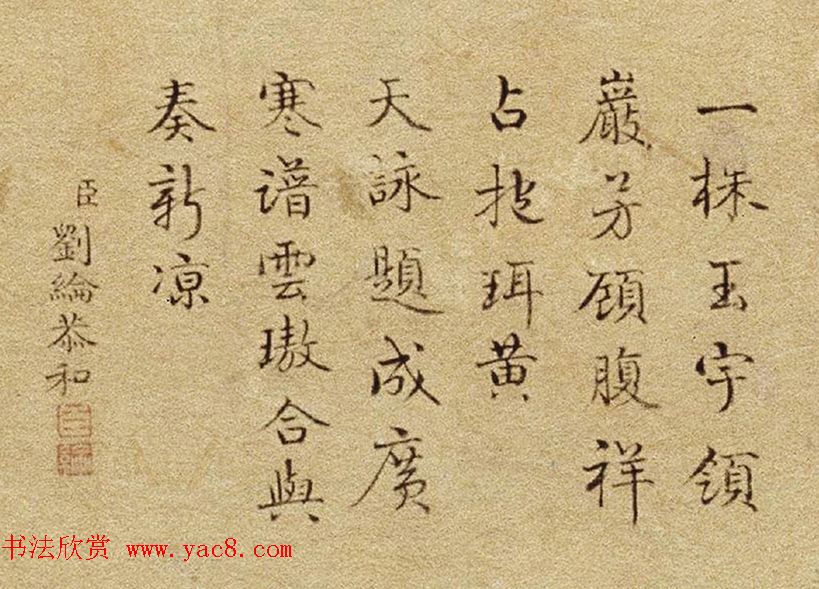 一株玉宇領
巖芳頋腹祥
占抱珥黄
天詠題成廣
寒譜雲璈合與
奏新凉
臣劉綸恭和
书法欣赏 www.yac8.com